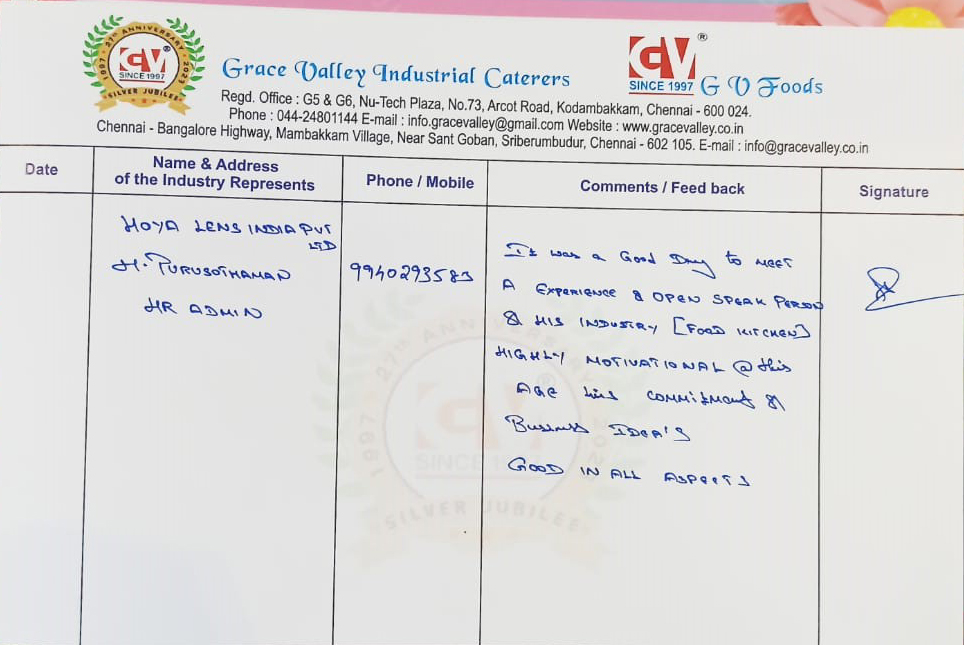 27th ANNIVERSARY
1997
2023
GV ®
SINCE 1997
SILVER JUBILEE
Grace Valley Industrial Caterers
GV ®
SINCE 1997
G V Foods
Regd. Office : G5 & G6, Nu-Tech Plaza, No.73, Arcot Road, Kodambakkam, Chennai - 600 024.
Phone : 044-24801144 E-mail : info.gracevalley@gmail.com Website : www.gracevalley.co.in
Chennai - Bangalore Highway, Mambakkam Village, Near Sant Goban, Sriberumbudur, Chennai - 602 105. E-mail : info@gracevalley.co.in
Date
Name & Address
of the Industry Represents
Phone / Mobile
Comments / Feed back
Signature
HOYA LENS INDIA PVT
LTD
H. PURUSOTHAMAN
HR ADMIN
9940293583
It was a Good Day to MEET
A EXPERIENCE & OPEN SPEAK PERSON
& HIS INDUSTRY [FOOD KITCHEN]
HIGHLY MOTIVATIONAL @ this
AGE his COMMITMENT &
Business IDEA'S
GOOD IN ALL ASPECTS
27th ANNIVERSARY
1997
SINCE 1997
SILVER JUBILEE